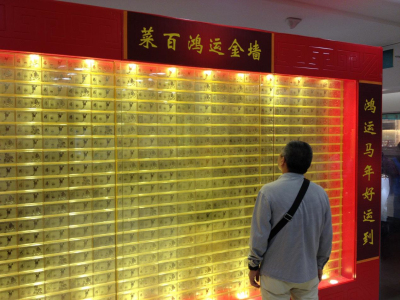 菜百鸿运金墙
鸿运马年好运到